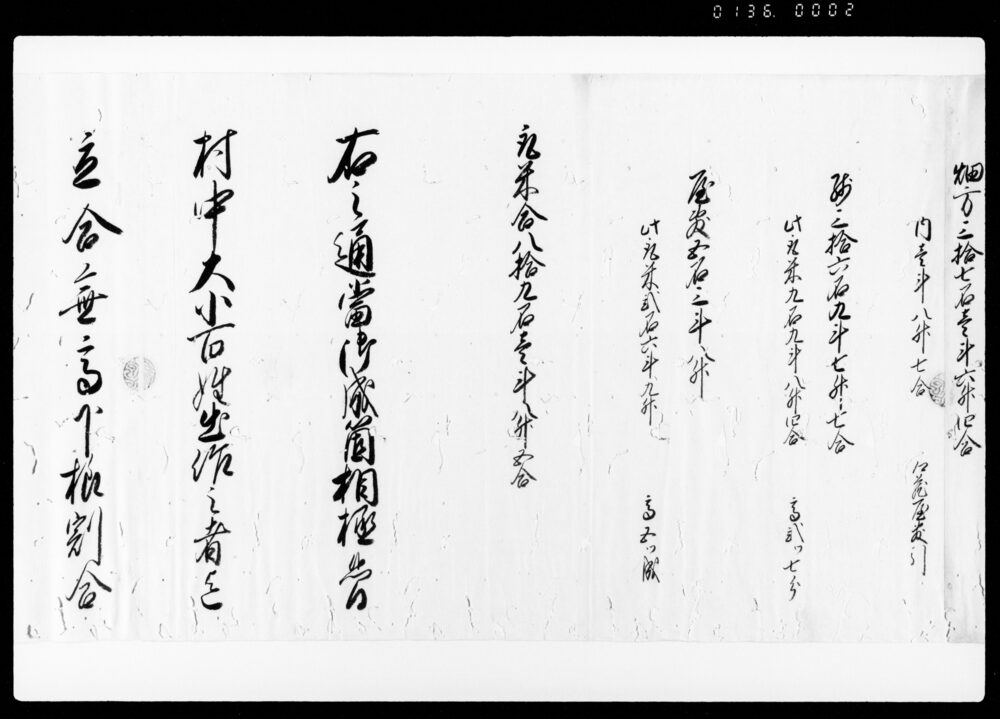 0136. 0002
畑方三拾七石壱斗六升四合
内壱斗八升七合 屋敷引
残三拾六石九斗七升七合
此取米九石九斗八升四合 高弐ツ七分
屋敷五石三斗八升
此取米弐石六斗九升 高五ツ成
取米合八拾九石壱斗八升五合
右之通當御成箇相極畢
村中大小百姓出作之者迄
立合無高下様割合